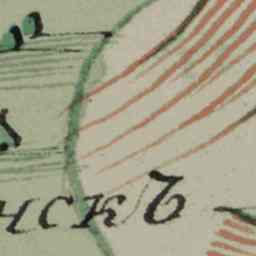 нскъ